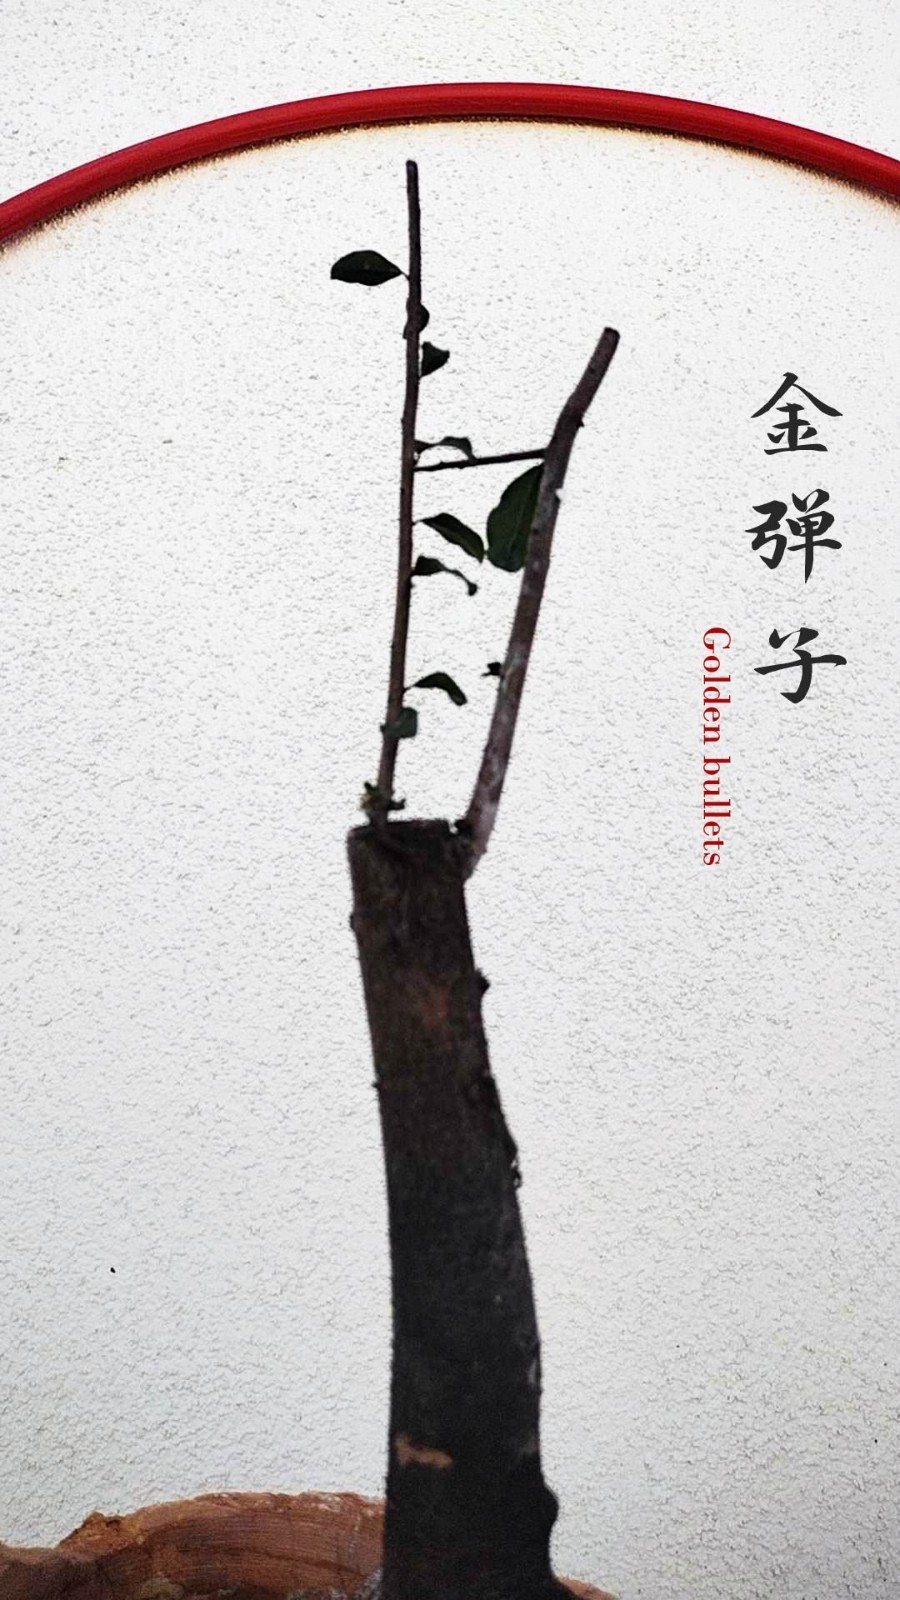 金弹子
Golden bullets